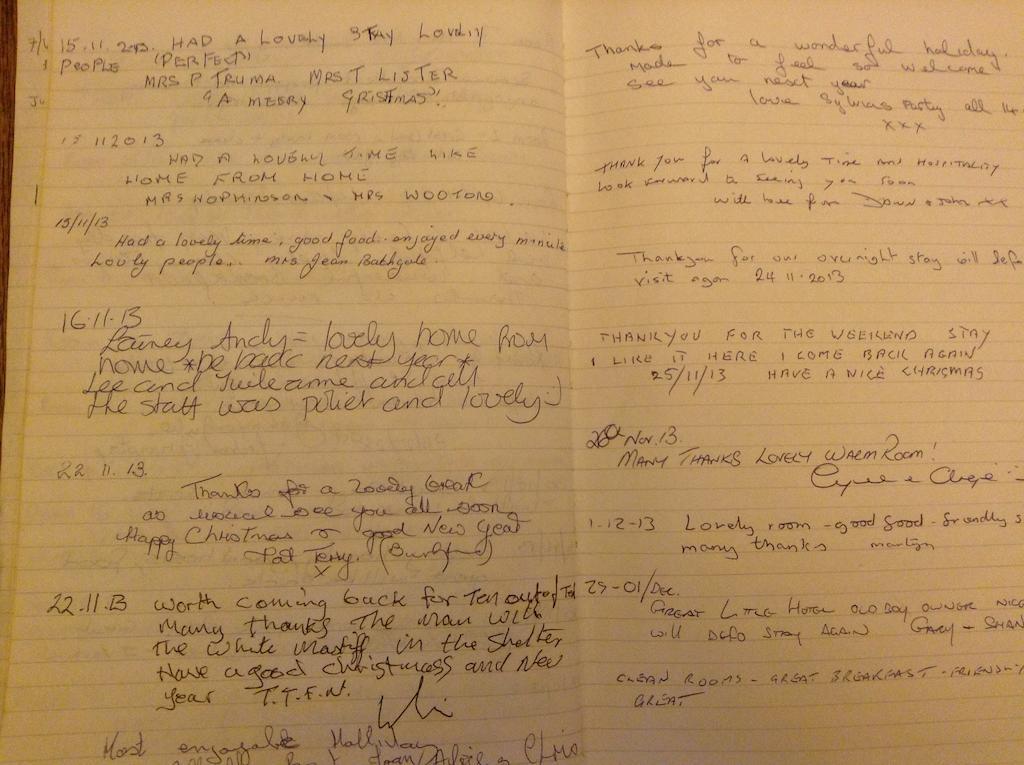 15.11.213. HAD A LOVELY STAY LOVELY
PEOPLE "PERFECT"
MRS P TRUMA. MRS T LISTER
"A MEERY GRISTMAS"
15 11 2013
HAD A LOVELY TIME LIKE
HOME FROM HOME
MRS HOPKINSON & MRS WOOTON.
15/11/13
Had a lovely time, good food. enjoyed every minute
Lovely people.. Mrs Jean Bathgate.
16.11.13
Lainey Andy = lovely home from
home *be back next year*
Lee and and all
the staff was poliet and lovely :)
22.11.13.
Thanks for a lovely break
as usual see you all soon
Happy Christmas & good New Year
Pat Terry.
x
22.11.13 worth coming back for Ten out of Ten
Many thanks The man with
the white Mastiff in the shelter
Have a good Christmass and New
year T.T.F.N.
Most enjoyable Holliday
Thanks for a wonderful holiday.
Made to feel so welcome
See you next year
love Sylvias Party all 14
xxx
THANK You for A lovely Time and HOSPITALITY
Look forward to seeing you soon
With love from Dawn & John xx
Thankyou for our overnight stay will defo
visit again 24 11.2013
THANKYOU FOR THE WEEKEND STAY
I LIKE IT HERE I COME BACK AGAIN
25/11/13 HAVE A NICE CHRISMAS
Nov. 13.
MANY THANKS LOVELY WARM ROOM!
1-12-13 Lovely room - good food - friendly s
many thanks martyn
29-01/Dec.
GREAT LITTLE HOTEL OLD BOY OWNER NICE
will DEFO STAY AGAIN GARY - SHAN
CLEAN ROOMS - GREAT BREAKFAST - FRIENDLY
GREAT